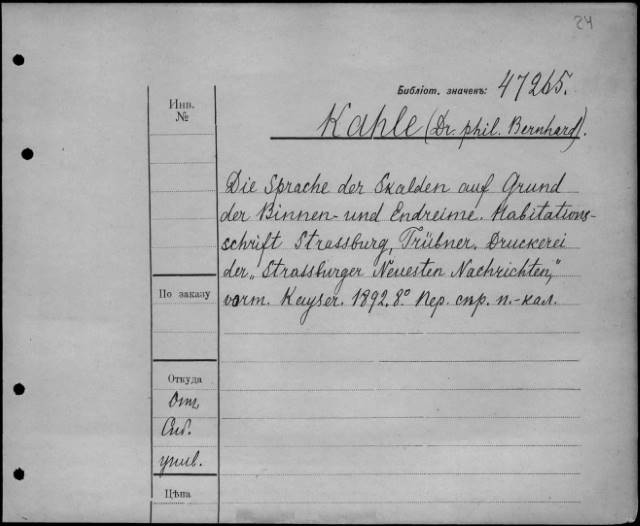 24
Библіот. значекъ: 47265.
Инв.
№
Kahle (Dr. phil. Bernhard).
Die Sprache der Skalden auf Grund
der Binnen- und Endreime. Habitations-
schrift Strassburg, Trübner. Druckerei
der „Strassburger Neuesten Nachrichten,"
По заказу
vorm. Kayser. 1892. 8° Пер. спр. п.-кал.
Откуда
Отт,
Сиб.
унив.
Цѣна